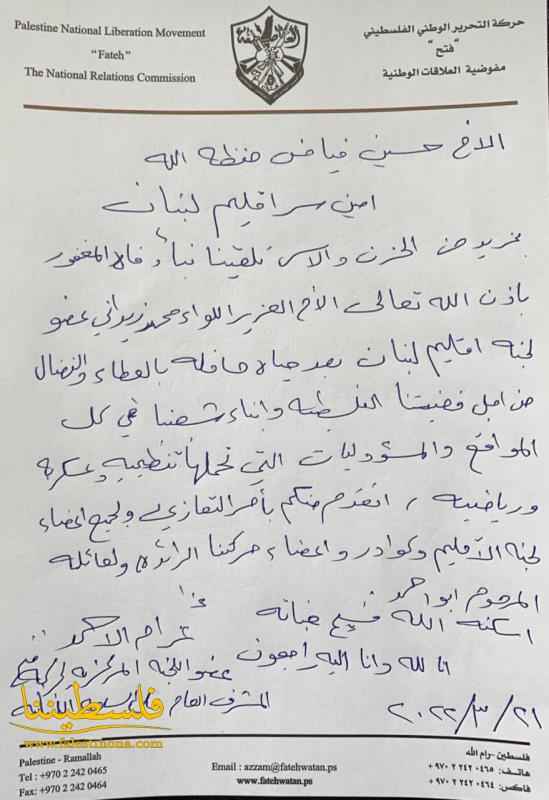 Palestine National Liberation Movement
"Fateh"
The National Relations Commission
حركة التحرير الوطني الفلسطيني
"فتح"
مفوضية العلاقات الوطنية
الاخ حسين فياض حفظه الله
امين سر اقليم لبنان
بمزيد من الحزن والاسى تلقينا نبأ وفاة المغفور
باذن الله تعالى الأخ العزيز اللواء محمد زيداني عضو
لجنة اقليم لبنان بعد حياة حافلة بالعطاء والنضال
من اجل قضيتنا الفلسطينية وابناء شعبنا في كل
المواقع والمسؤوليات التي تحملها تنظيمية وعسكرية
ورياضية ، اتقدم منكم بأحر التعازي ولجميع اعضاء
لجنة الأقليم وكوادر واعضاء حركتنا الرائدة ولعائلة
المرحوم ابو احمد
اسكنه الله فسيح جنانه
انا لله وانا اليه راجعون
عزام الاحمد
عضو اللجنة المركزية لحركة فتح
المشرف العام
٢٠٢٢/٣/٢١
فلسطيننا
www.falestinona.com
Palestine - Ramallah
Tel : +970 2 242 0465
Fax: +970 2 242 0464
Email : azzam@fatehwatan.ps
www.fatehwatan.ps
فلسطين -رام الله
هاتف: ٠٤٦٥ ٢٤٢ ٢ ٩٧٠+
فاكس: ٠٤٦٤ ٢٤٢ ٢ ٩٧٠+